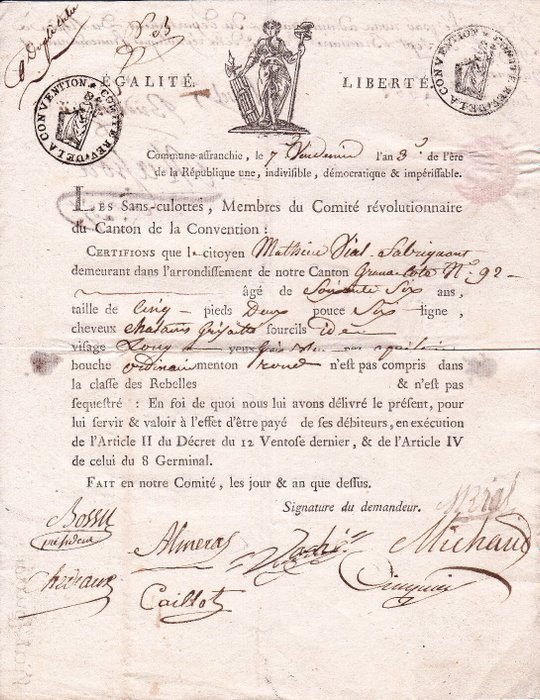 ÉGALITÉ. LIBERTÉ.
COMITÉ RÉV. DE LA CONVENTION
COMITÉ RÉV. DE LA CONVENTION
Commune-affranchie, le 7 l'an 3e. de l'ère
de la République une, indivisible, démocratique & impérissable.
LES Sans-culottes, Membres du Comité révolutionnaire
du Canton de la Convention :
CERTIFIONS que le citoyen Mathieu Vial
demeurant dans l'arrondissement de notre Canton No. 92
âgé de Soixante Six ans,
taille de Cinq pieds Deux pouce Six ligne,
cheveux sourcils idem
visage Long yeux nez
bouche ordinaire menton rond n'est pas compris dans
la classe des Rebelles & n'est pas
sequestré : En foi de quoi nous lui avons délivré le présent, pour
lui servir & valoir à l'effet d'être payé de ses débiteurs, en exécution
de l'Article II du Décret du 12 Ventose dernier, & de l'Article IV
de celui du 8 Germinal.
FAIT en notre Comité, les jour & an que dessus.
Signature du demandeur.
Bossu
président
Almeras
Michaud
Caillot